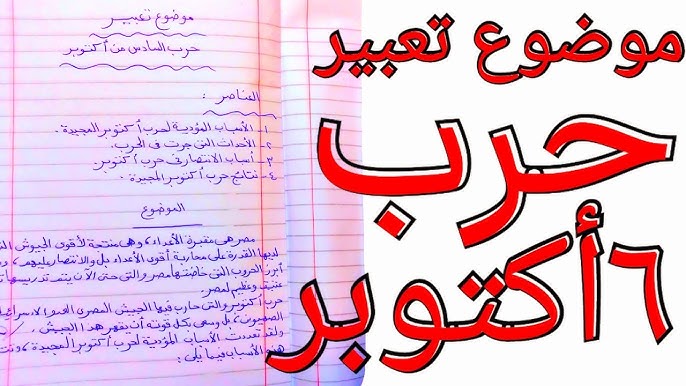 موضوع تعبير
حرب
٦أكتوبر
موضوع تعبير
حرب السادس من أكتوبر
العناصر :
١- الأسباب المؤدية لحرب أكتوبر المجيدة.
٢- الأحداث التى جرت فى الحرب.
٣- أسباب الانتصار فى حرب أكتوبر.
٤- نتائج حرب أكتوبر المجيدة.
الموضوع
مصر هى مقبرة الأعداء، وهى منتجة لأقوى الجيوش
لديها القدرة على محاربة أقوى الأعداء بل والانتصار عليهم،
أبرز الحروب التى خاضتها مصر والتى حتى الآن يتم تدريسها
عتيق وعظيم لمصر.
حرب أكتوبر والتى حارب فيها الجيش المصرى العدو
الصهيون، بل وسعى بكل قوته أن يقهر هذا الجيش،
ولقد تعددت الأسباب المؤدية لحرب أكتوبر المجيدة،
هذه الأسباب فيما يلى: